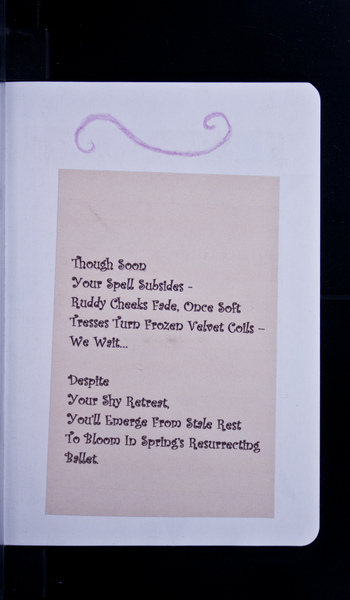 Though Soon
Your Spell Subsides -
Ruddy Cheeks Fade, Once Soft
Tresses Turn Frozen Velvet Coils –
We Wait...
Despite
Your Shy Retreat,
You'll Emerge From Stale Rest
To Bloom In Spring's Resurrecting
Ballet.